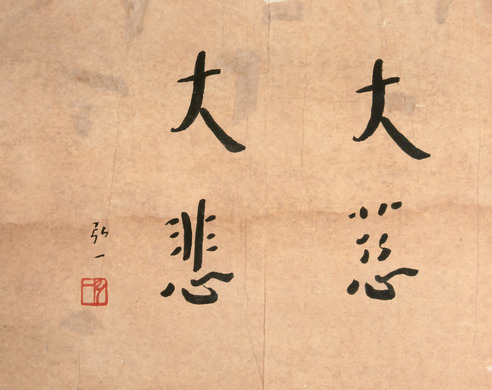 大慈
大悲
弘一